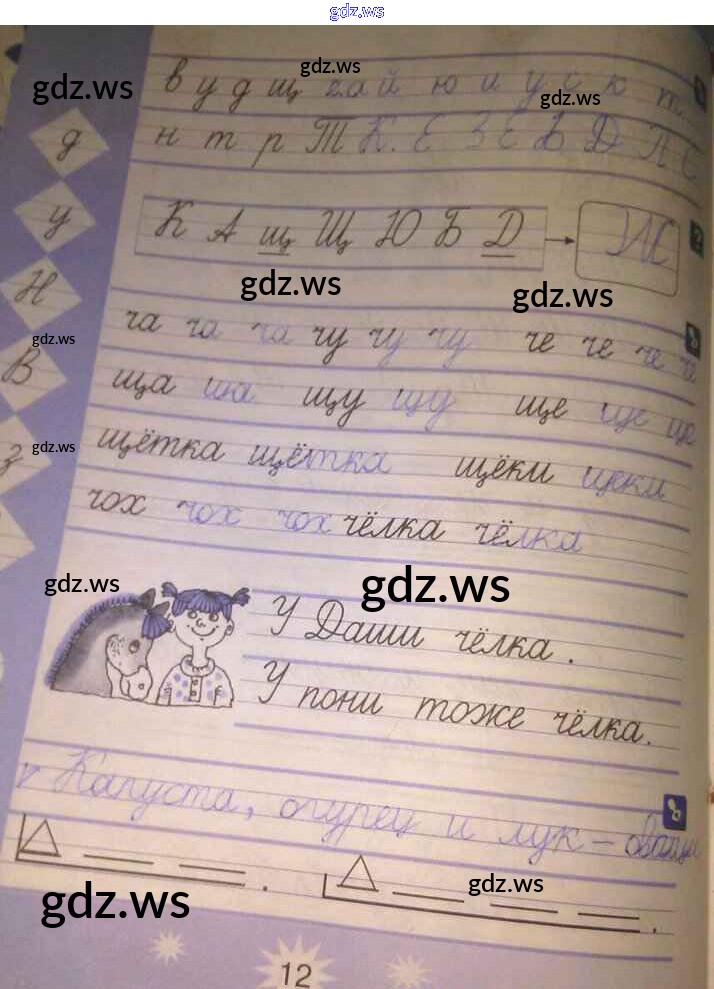 gdz.ws
в у д щ з а й ю и у с к т
н т р Т К Е З Е В Д Л С
д
у
Н
В
з
К А щ Щ Ю Б Д
ча ча ча чу чу чу че че че че
ща ща щу щу ще ще ще
щётка щётка щёки щеки
чох чох чох чёлка чёлка
У Даши чёлка.
У пони тоже чёлка.
Капуста, огурец и лук –
12
gdz.ws
gdz.ws
gdz.ws
gdz.ws
gdz.ws
gdz.ws
gdz.ws
gdz.ws
gdz.ws
gdz.ws
gdz.ws